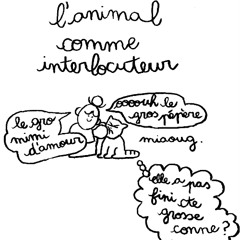 l'animal
comme
interlocuteur
oooouh le
gros pépère
le gro
mimi
d'amour
miaoug.
elle a pas
fini cte
grosse
conne?